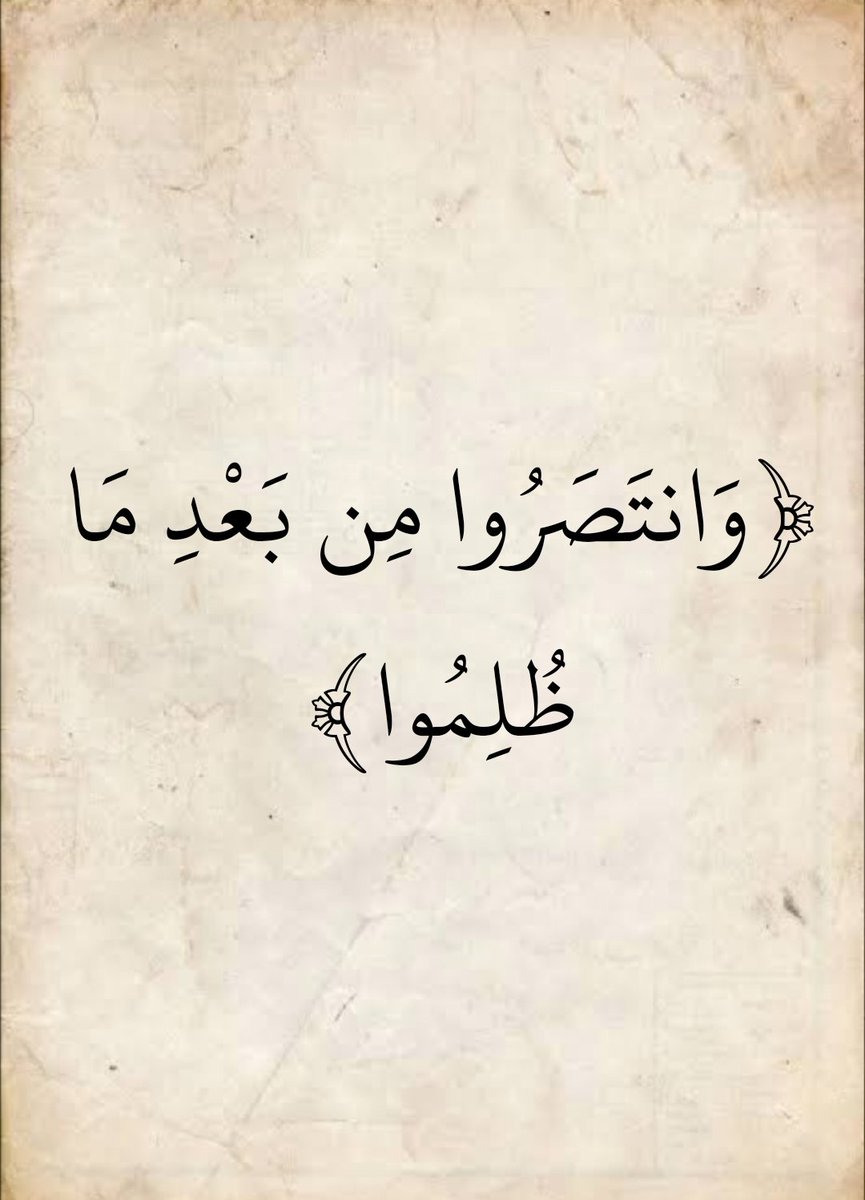 ﴿وَانتَصَرُوا مِن بَعْدِ مَا
ظُلِمُوا﴾